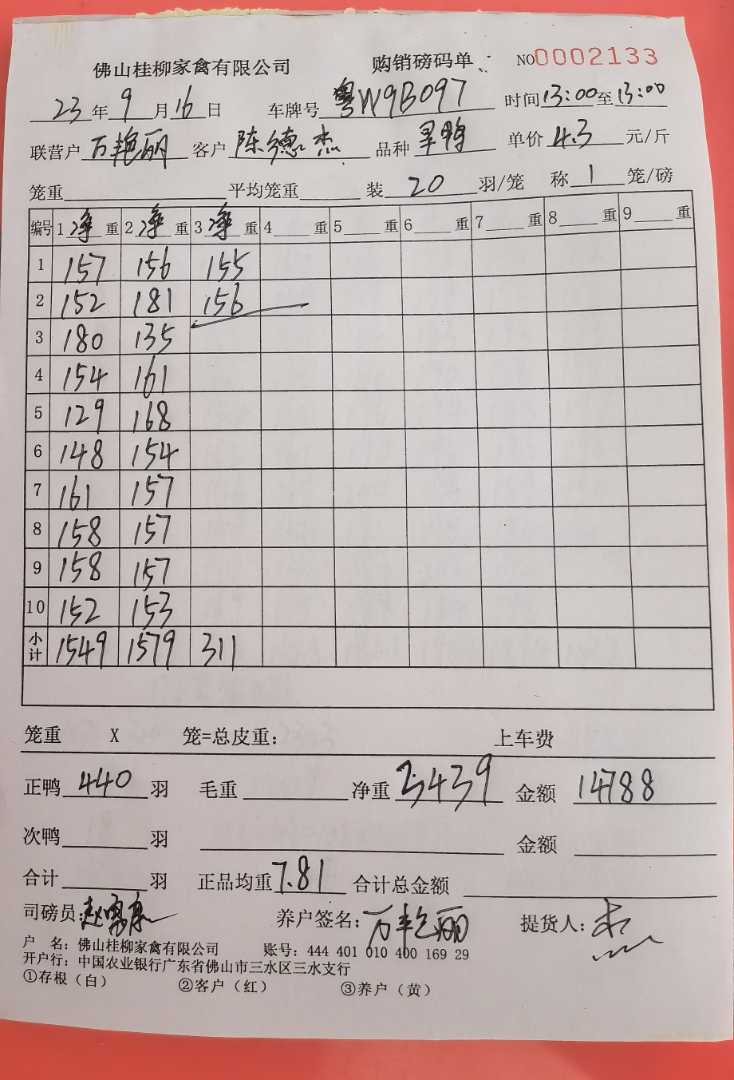 佛山桂柳家禽有限公司 购销磅码单 NO0002133
23年9月16日 车牌号 粤W9B097 时间13:00至13:00
联营户 万艳丽 客户 陈德杰 品种 单价 4.3 元/斤
笼重 平均笼重 装 20 羽/笼 称 1 笼/磅
编号 1 净 重 2 净 重 3 净 重 4 重 5 重 6 重 7 重 8 重 9 重
1 157 156 155
2 152 181 156
3 180 135
4 154 161
5 129 168
6 148 154
7 161 157
8 158 157
9 158 157
10 152 153
小计 1549 1579 311
笼重 X 笼=总皮重: 上车费
正鸭 440 羽 毛重 净重 3439 金额 14788
次鸭 羽 金额
合计 羽 正品均重 7.81 合计总金额
司磅员: 养户签名: 万艳丽 提货人: 杰
户 名: 佛山桂柳家禽有限公司 账号: 444 401 010 400 169 29
开户行: 中国农业银行广东省佛山市三水区三水支行
①存根(白) ②客户(红) ③养户(黄)